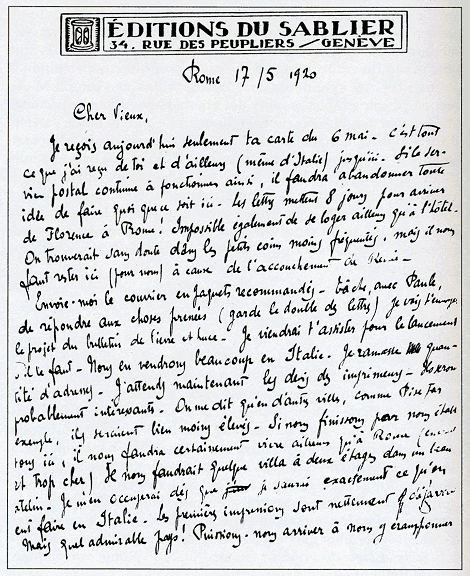 ÉDITIONS DU SABLIER
34. RUE DES PEUPLIERS / GENÈVE
Rome 17/5 1920
Cher Vieux,
Je reçois aujourd'hui seulement ta carte du 6 mai - C'est tout
ce que j'ai reçu de toi et d'ailleurs (même d'Italie) jusqu'ici. Si le ser-
vice postal continue à fonctionner ainsi, il faudra abandonner toute
idée de faire quoi que ce soit ici - Les lettres mettent 8 jours pour arriver
de Florence à Rome! Impossible également de se loger ailleurs qu'à l'hôtel.
On trouverait sans doute dans les petits coins moins fréquentés, mais il nous
faut rester ici (pour nous) à cause de l'accouchement de
Envoie-moi le courrier en paquets recommandés - Tâche, avec Paule,
de répondre aux choses pressées (garde le double des lettres) Je vais t'envoyer
le projet du bulletin de Je viendrai t'assister pour le lancement
s'il le faut - Nous en vendrons beaucoup en Italie. Je ramasse quan-
tité d'adresses - J'attends maintenant les devis des imprimeurs - Ils seront
probablement intéressants - On me dit qu'en d'autres villes, comme Pise par
exemple, ils seraient bien moins élevés - Si nous finissons par nous établir
tous ici, il nous faudra certainement vivre ailleurs qu'à Rome
et trop cher) Il nous faudrait quelque villa à deux étages dans un beau
Je m'en occuperai dès que je saurai exactement ce qu'on
peut faire en Italie - Les premières impressions sont nettement
Mais quel admirable pays! Puissions-nous arriver à nous y cramponner